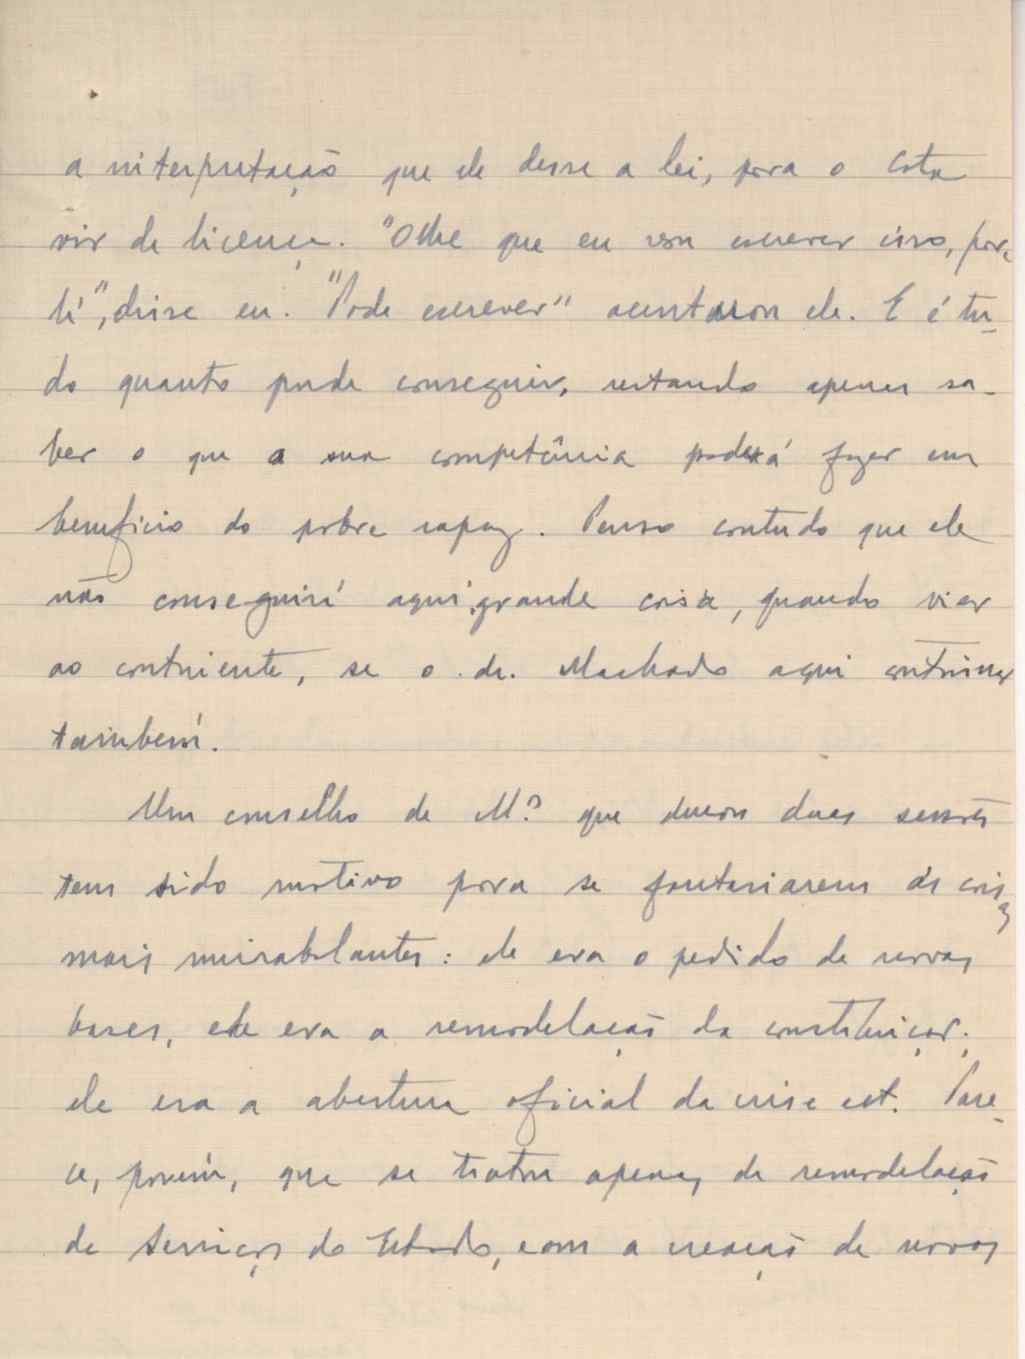 a interpretação que ele desse a lei, para o Cota
vir de licença. "Olhe que eu vou escrever isso, por-
lá", disse eu. "Pode escrever" acentuou ele. E é tu-
do quanto pude conseguir, restando apenas sa-
ber o que a sua competência poderá fazer em
beneficio do pobre rapaz. Penso contudo que ele
não conseguirá aqui grande coisa, quando vier
ao continente, se o dr. Machado aqui continuar
também.
Um conselho de M.os que durou duas sessões
tem sido motivo para se fantasiarem ás coisas
mais mirabolantes: ele era o pedido de novas
bases, ele era a remodelação da constituição;
ele era a abertura oficial da crise ect. Pare-
ce, porém, que se tratou apenas de remodelação
de serviços do Estado, com a creação de novos